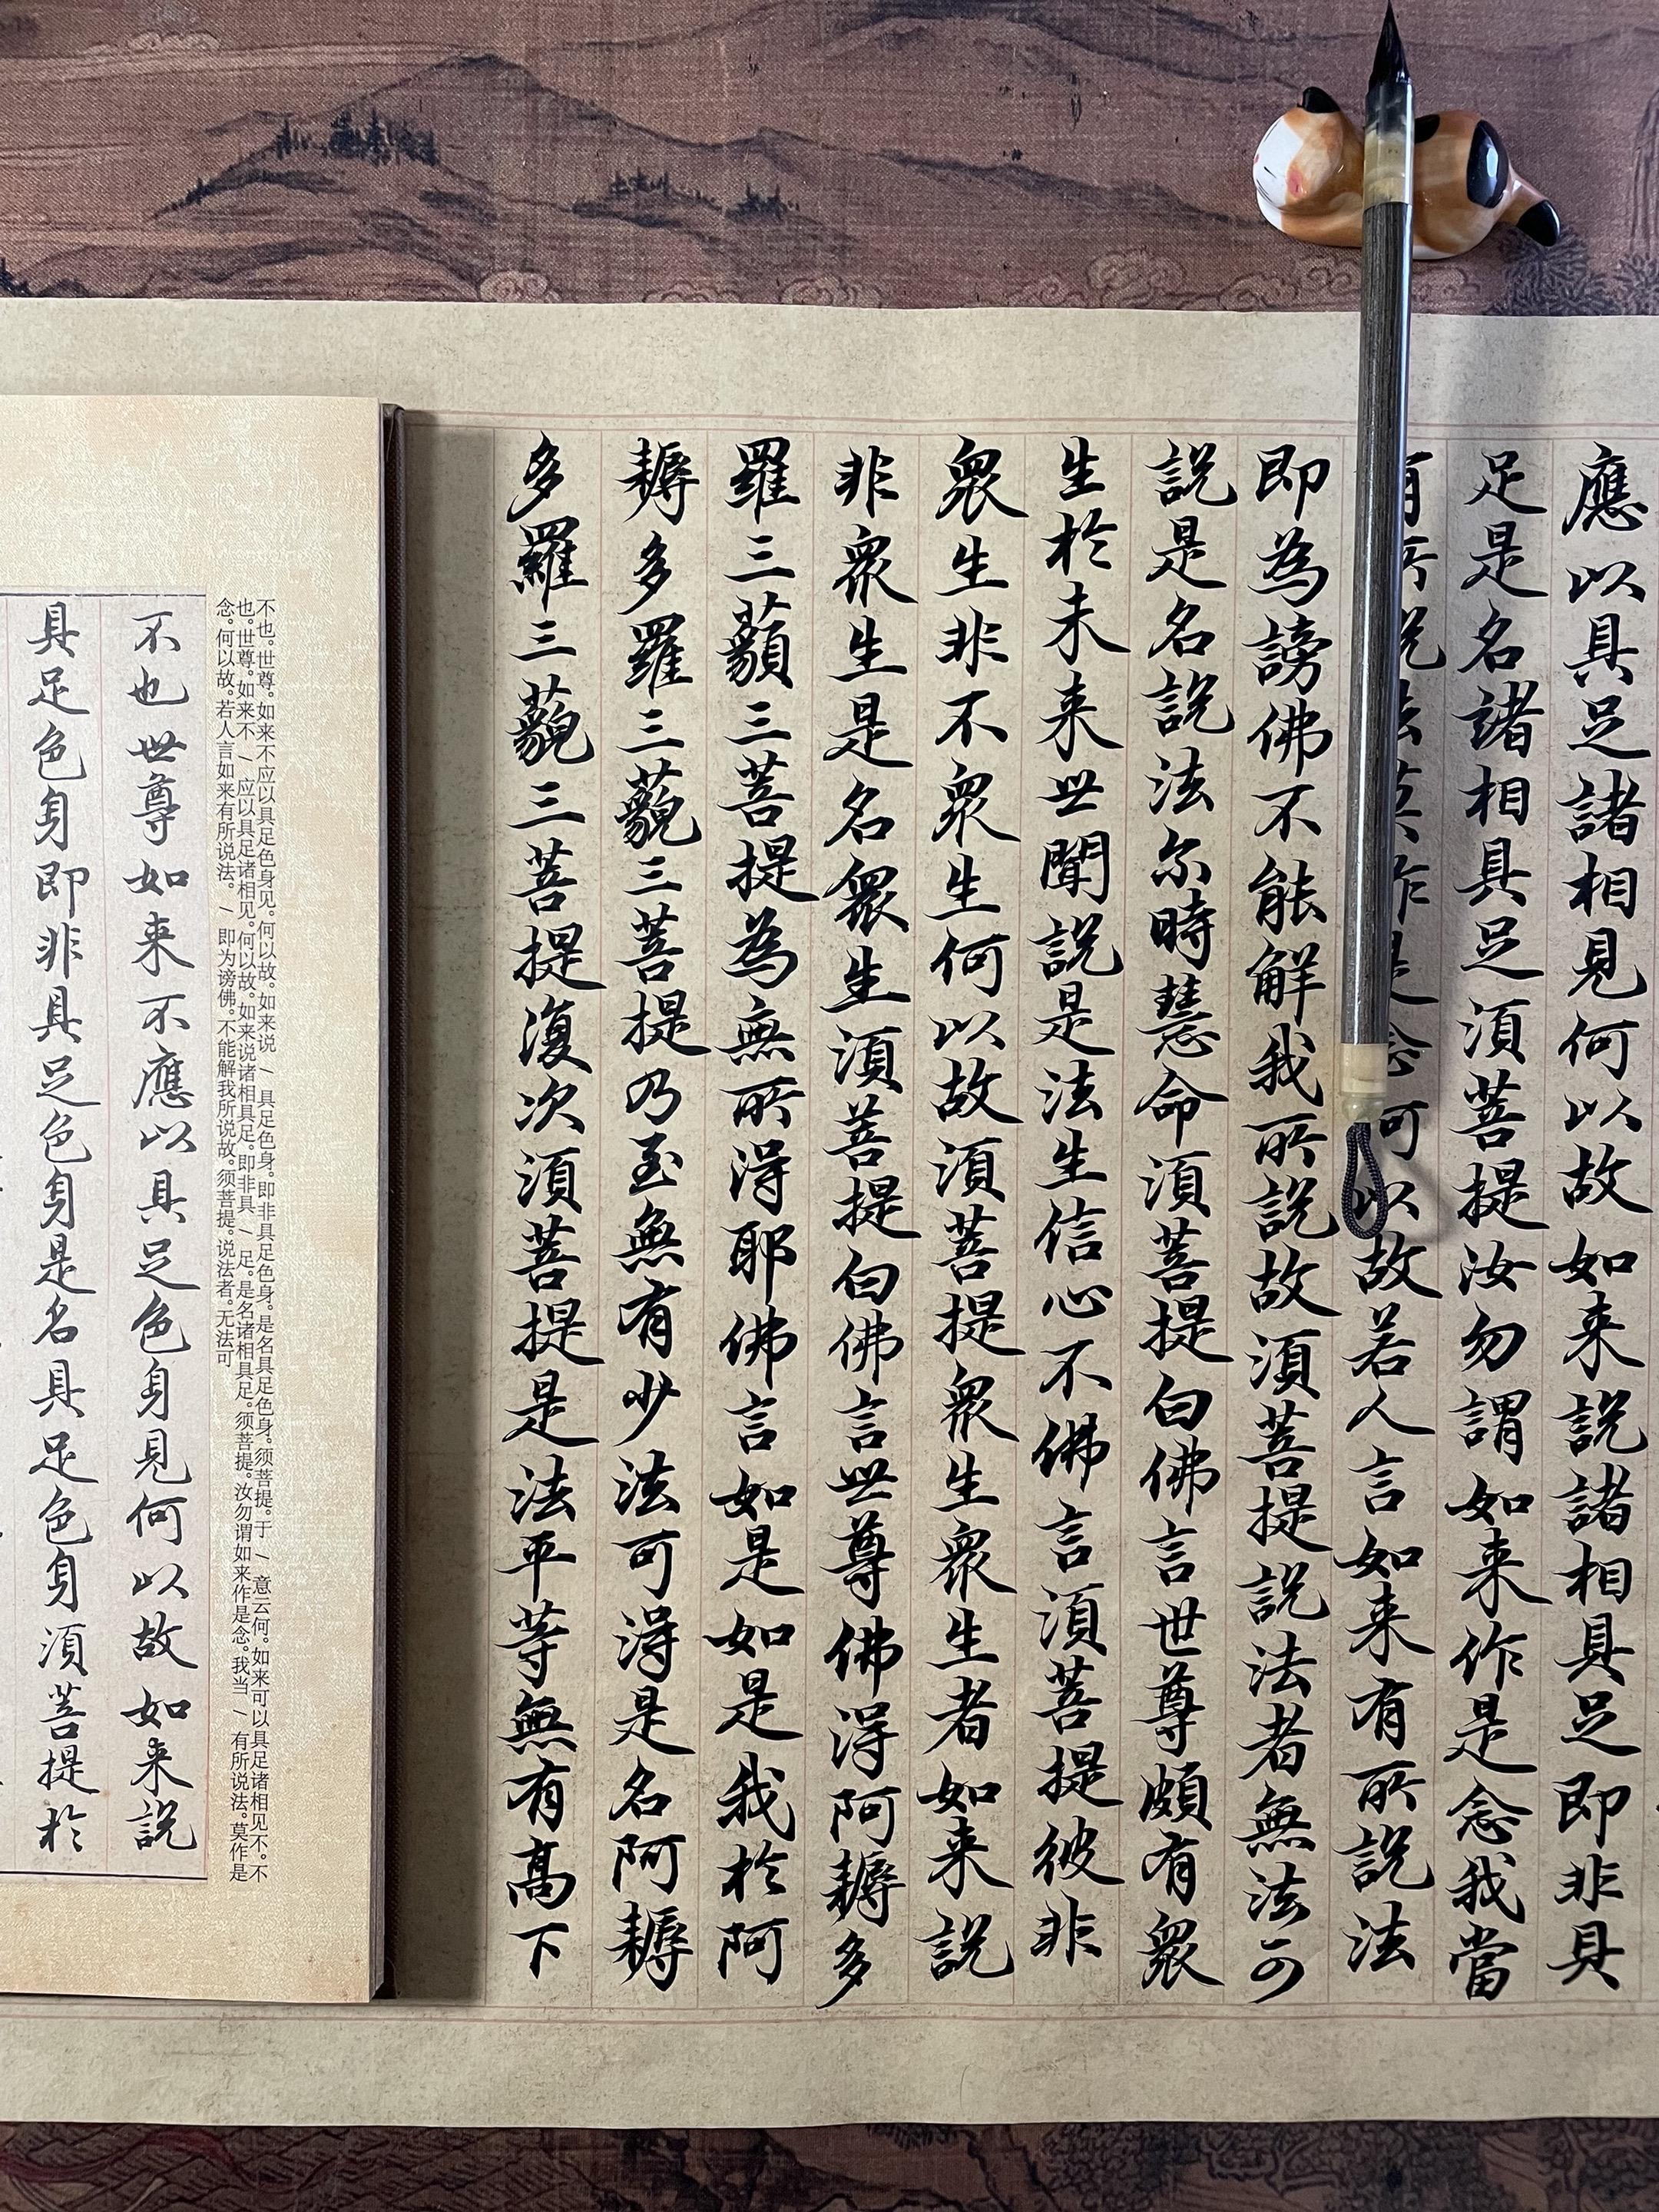 應以具足諸相見何以故如来説諸相具足即非具
足是名諸相具足須菩提汝勿謂如来作是念我當
有所説法莫作是念何以故若人言如来有所説法
即為謗佛不能解我所説故須菩提説法者無法可
説是名説法尒時慧命須菩提白佛言世尊頗有衆
生於未来世聞説是法生信心不佛言須菩提彼非
衆生非不衆生何以故須菩提衆生衆生者如来説
非衆生是名衆生須菩提白佛言世尊佛得阿耨多
羅三藐三菩提為無所得耶佛言如是如是我於阿
耨多羅三藐三菩提乃至無有少法可得是名阿耨
多羅三藐三菩提復次須菩提是法平等無有高下
不也。世尊。如来不应以具足色身见。何以故。如来说 / 具足色身。即非具足色身。是名具足色身。须菩提。于 / 意云何。如来可以具足诸相见不。不
也。世尊。如来不 / 应以具足诸相见。何以故。如来说诸相具足。即非具 / 足。是名诸相具足。须菩提。汝勿谓如来作是念。我当 / 有所说法。莫作是
念。何以故。若人言如来有所说法。 / 即为谤佛。不能解我所说故。须菩提。说法者。无法可
不也世尊如来不應以具足色身見何以故如来説
具足色身即非具足色身是名具足色身須菩提於